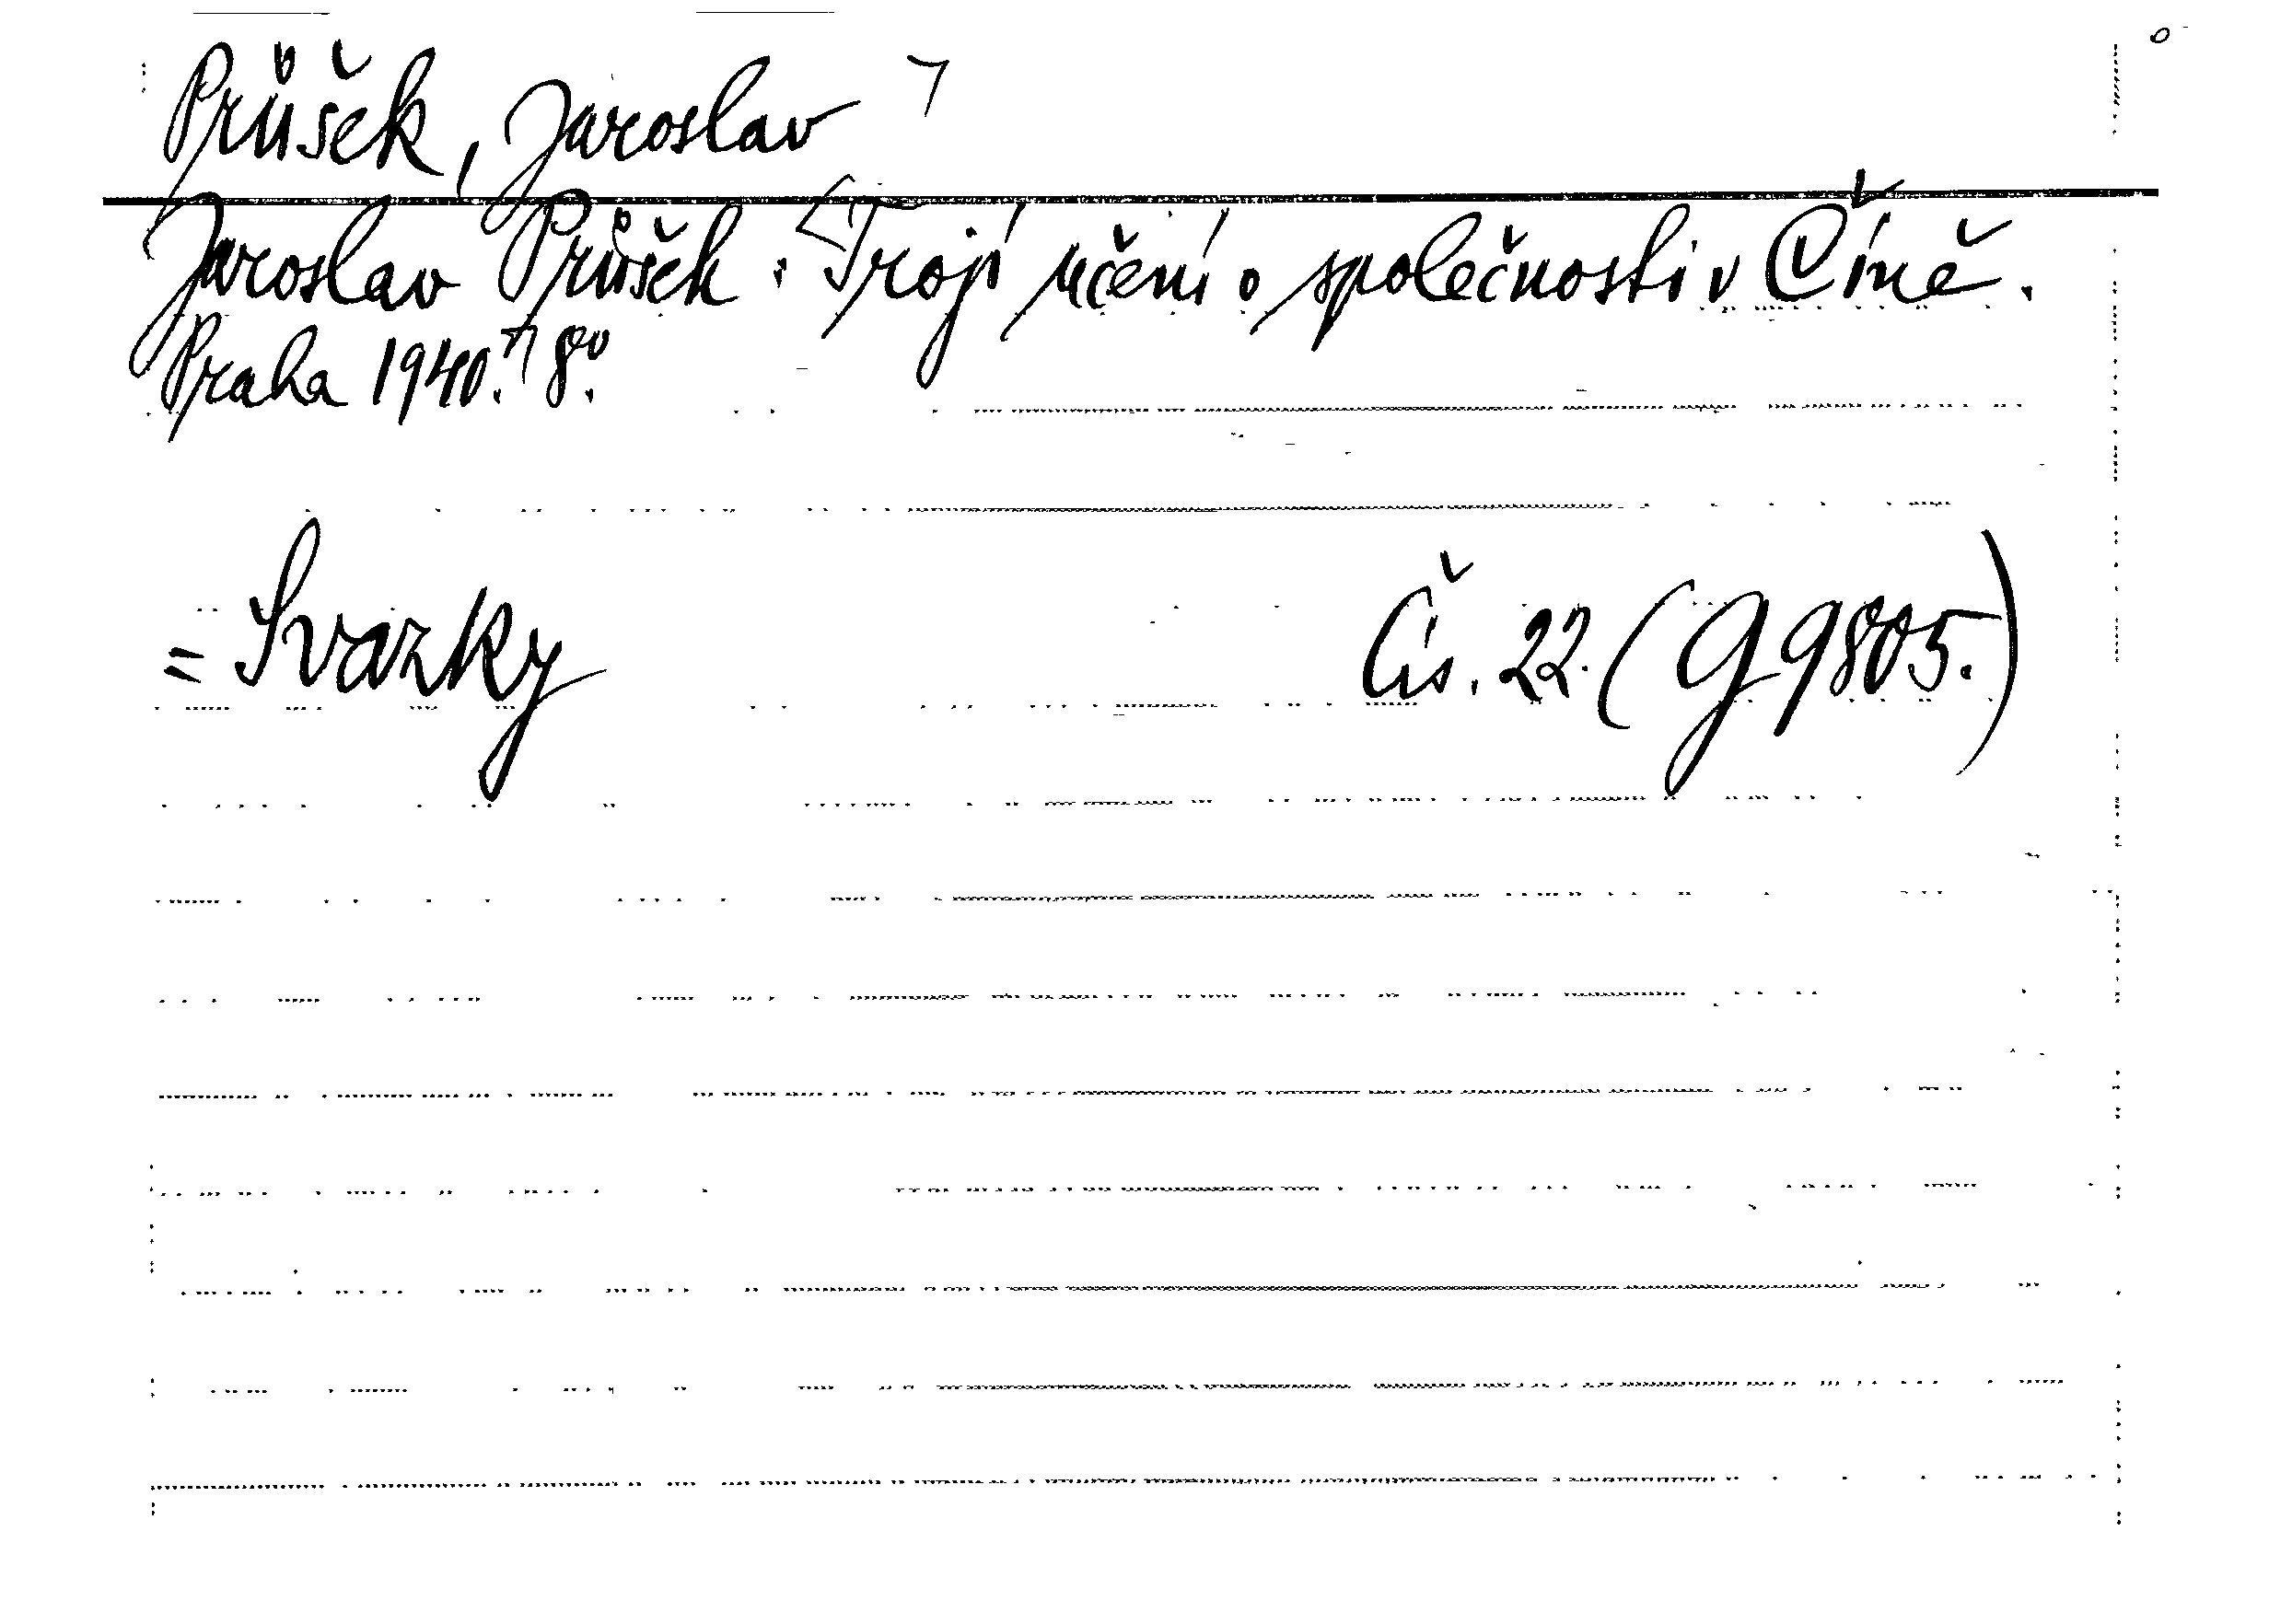 Průšek, Jaroslav
Jaroslav Průšek: Trojí učení o společnosti v Číně.
Praha 1940. 8º.
= Svazky Čís. 22. (G 9805.)